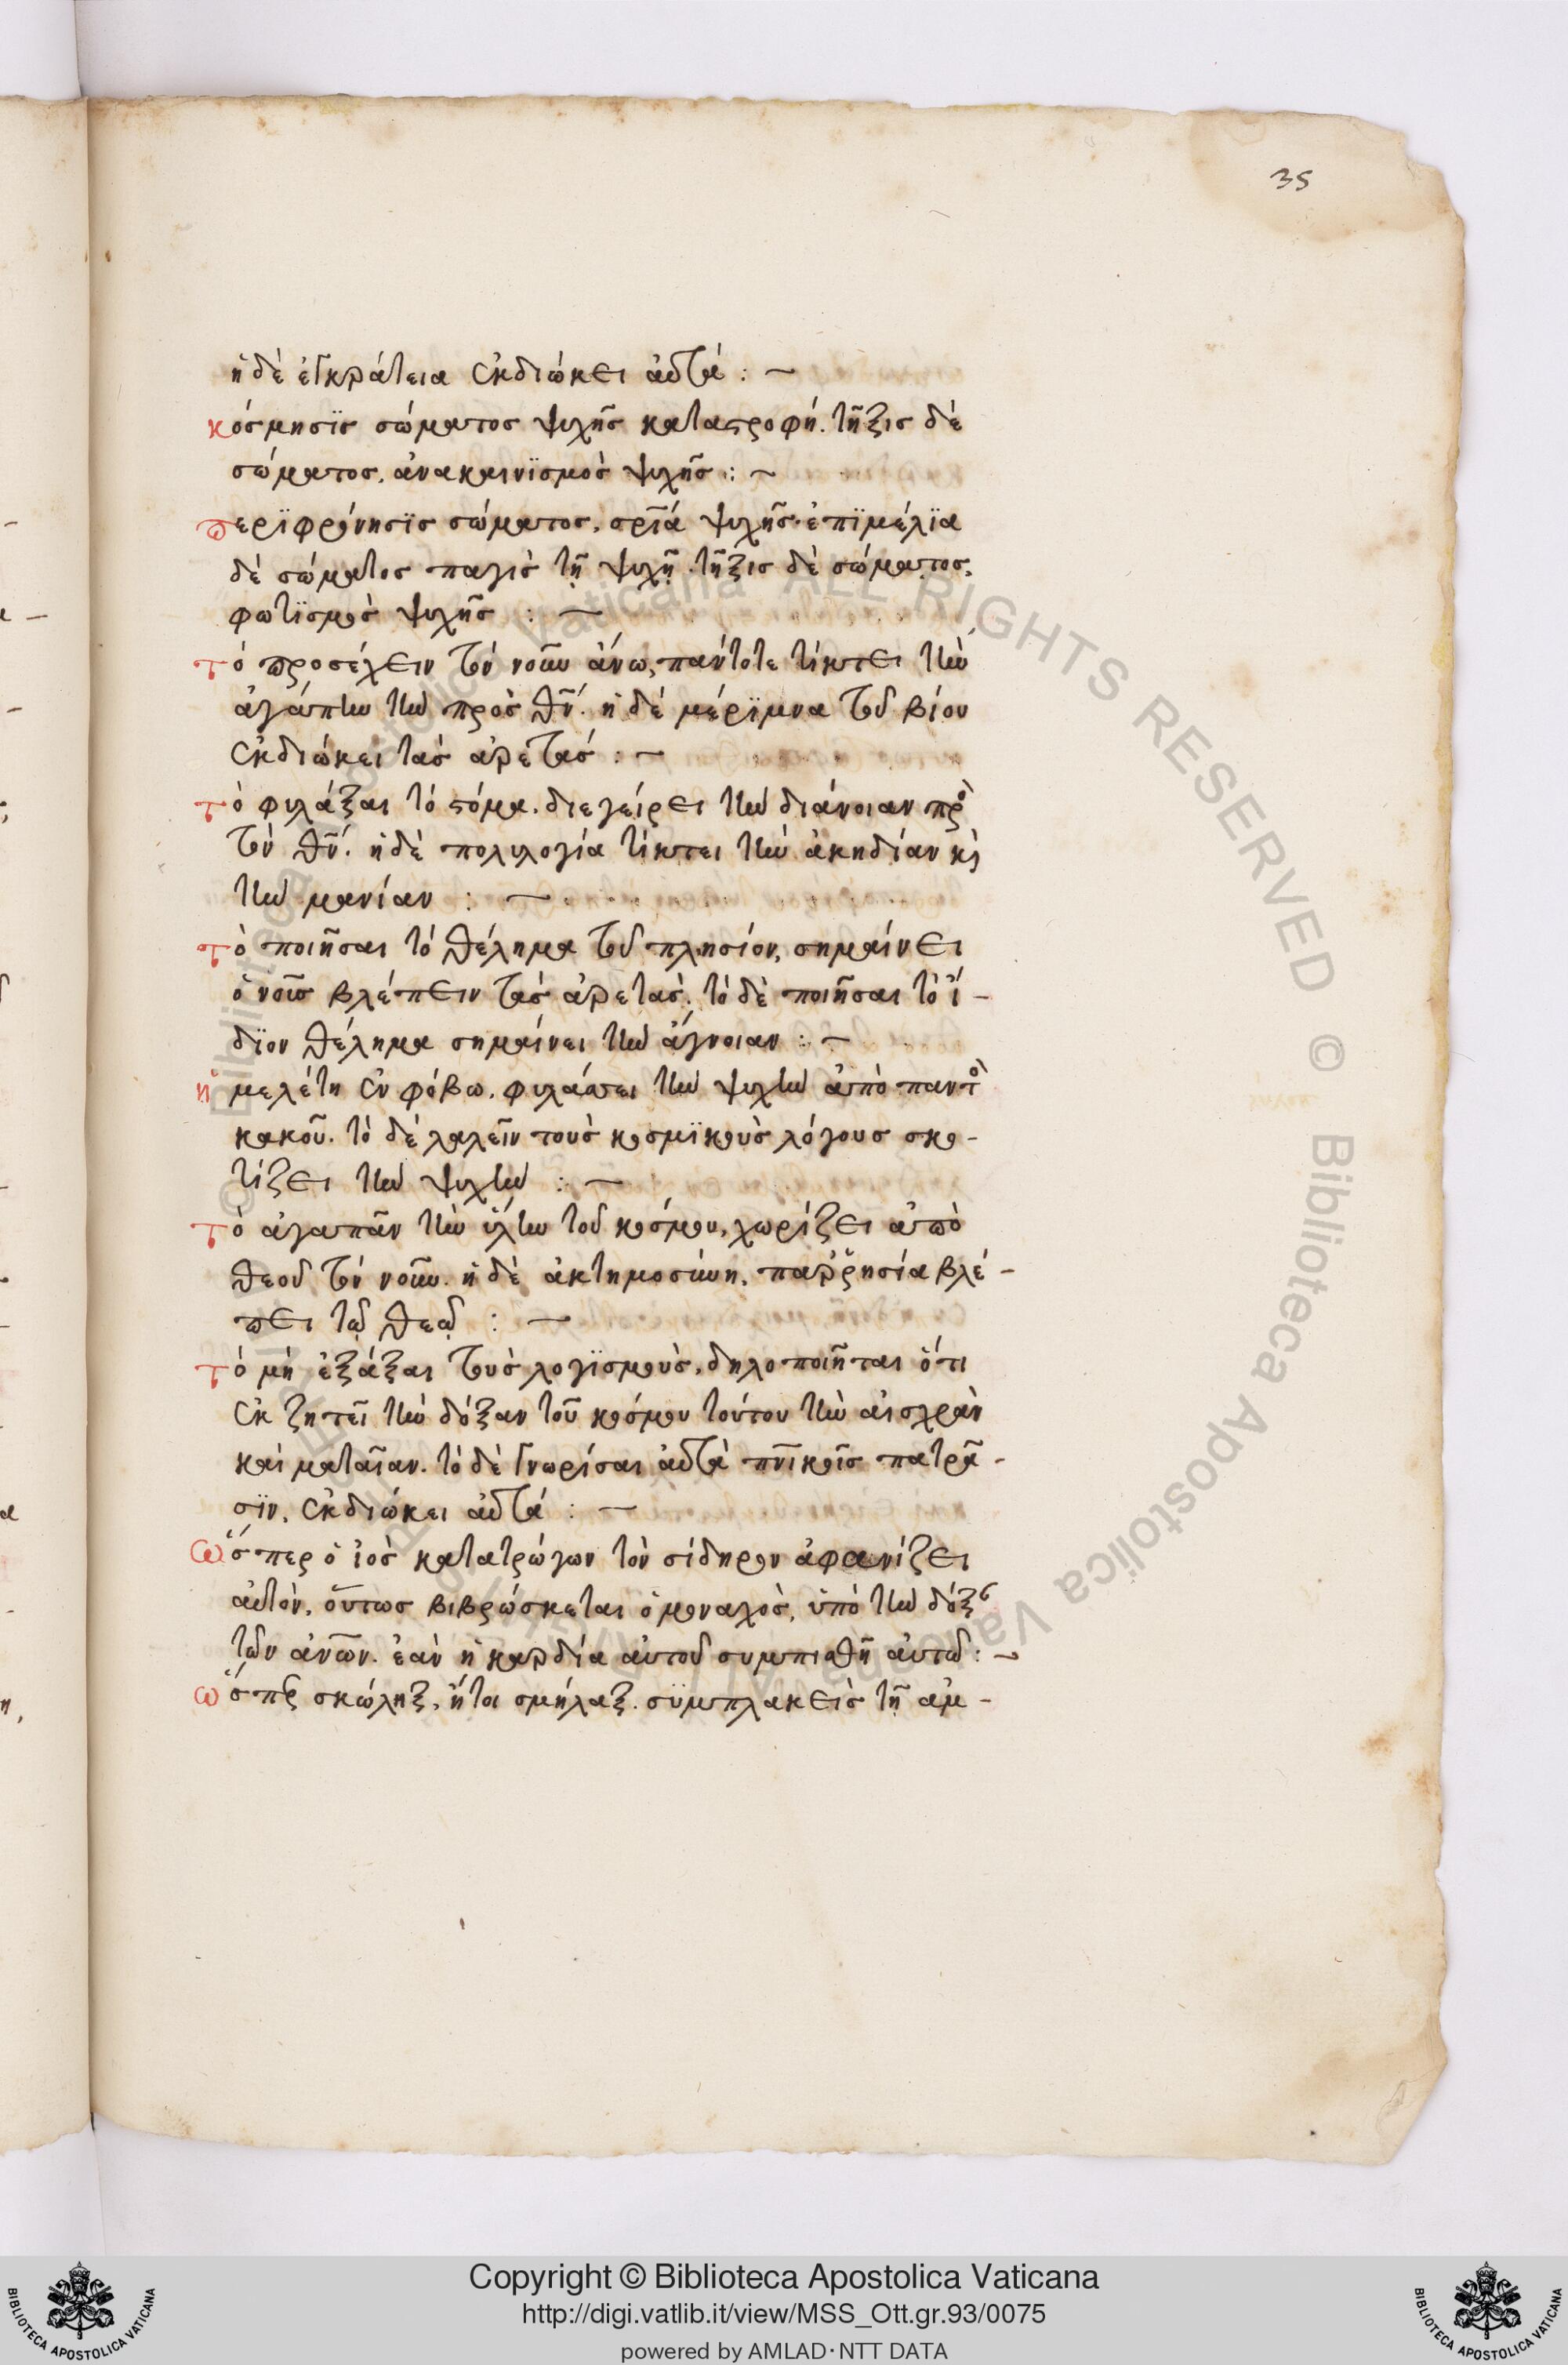 35
ἡ δὲ ἐγκράτεια ἐκδιώκει αὐτά : ~
κόσμησϊς σώματος ψυχῆς καταστροφή. τῆξις δὲ
σώματος, ἀνακαινϊσμὸς ψυχῆς : ~
περϊφρόνησϊς σώματος, σρῖά ψυχῆς· ἐπϊμέλϊα
δὲ σώματος παγὶς τῇ ψυχῇ. τῆξις δὲ σώματος,
φωτϊσμὸς ψυχῆς : ~
τὸ προσέχειν τὸν νοῦν ἄνω, πάντοτε τίκτει τὴν
ἀγάπην τὴν πρὸς θν̅. ἡ δὲ μέρϊμνα τοῦ βίου
ἐκδιώκει τὰς ἀρετάς : ~
τὸ φυλάξαι τὸ στόμα, διεγείρει τὴν διάνοιαν πρὸ
τὸν θν̅. ἡ δὲ πολυλογία τίκτει τὴν ἀκηδίαν κὶ
τὴν μανίαν : ~
τὸ ποιῆσαι τὸ θέλημα τοῦ πλησίον, σημαίνει
ὁ νοῦς βλέπειν τὰς ἀρετάς. τὸ δὲ ποιῆσαι τὸ ἴ-
δϊον θέλημα σημαίνει τὴν ἄγνοιαν : ~
ἡ μελέτη ἐν φόβω, φυλάττει τὴν ψυχὴν ἀπὸ παντὸ
κακοῦ. τὸ δὲ λαλεῖν τοὺς κοσμϊκοὺς λόγους σκο-
τίζει τὴν ψυχήν : ~
τὸ ἀγαπᾶν τὴν ὕλην τοῦ κόσμου, χωρίζει ἀπὸ
θεοῦ τὸν νοῦν. ἡ δὲ ἀκτημοσύνη, παῤῥησία βλέ-
πει τῷ θεῷ : ~
τὸ μὴ ἐξάξαι τοὺς λογϊσμοὺς, δηλοποιῆται ὅτι
ἐκζητεῖ τὴν δόξαν τοῦ κόσμου τούτου τὴν αἰσχρὰν
καὶ ματαῖαν. τὸ δὲ γνωρίσαι αὐτὰ πνι̅κοῖς πατρᾶ-
σϊν, ἐκδιώκει αὐτά : ~
ὥσπερ ὁ ἰὸς κατατρώγων τὸν σίδηρον ἀφανίζει
αὐτὸν, οὕτως βιβρώσκεται ὁ μοναχὸς, ὑπὸ τὴν δόξς
τῶν ἀνω̅ν. ἐὰν ἡ καρδία αὐτοῦ συμπιαθῇ αὐτῶ : ~
ὥσπερ σκώληξ, ἤτοι σμήλαξ. σϋμπλακεὶς τῇ ἀμ-
Copyright © Biblioteca Apostolica Vaticana
http://digi.vatlib.it/view/MSS_Ott.gr.93/0075
powered by AMLAD·NTT DATA